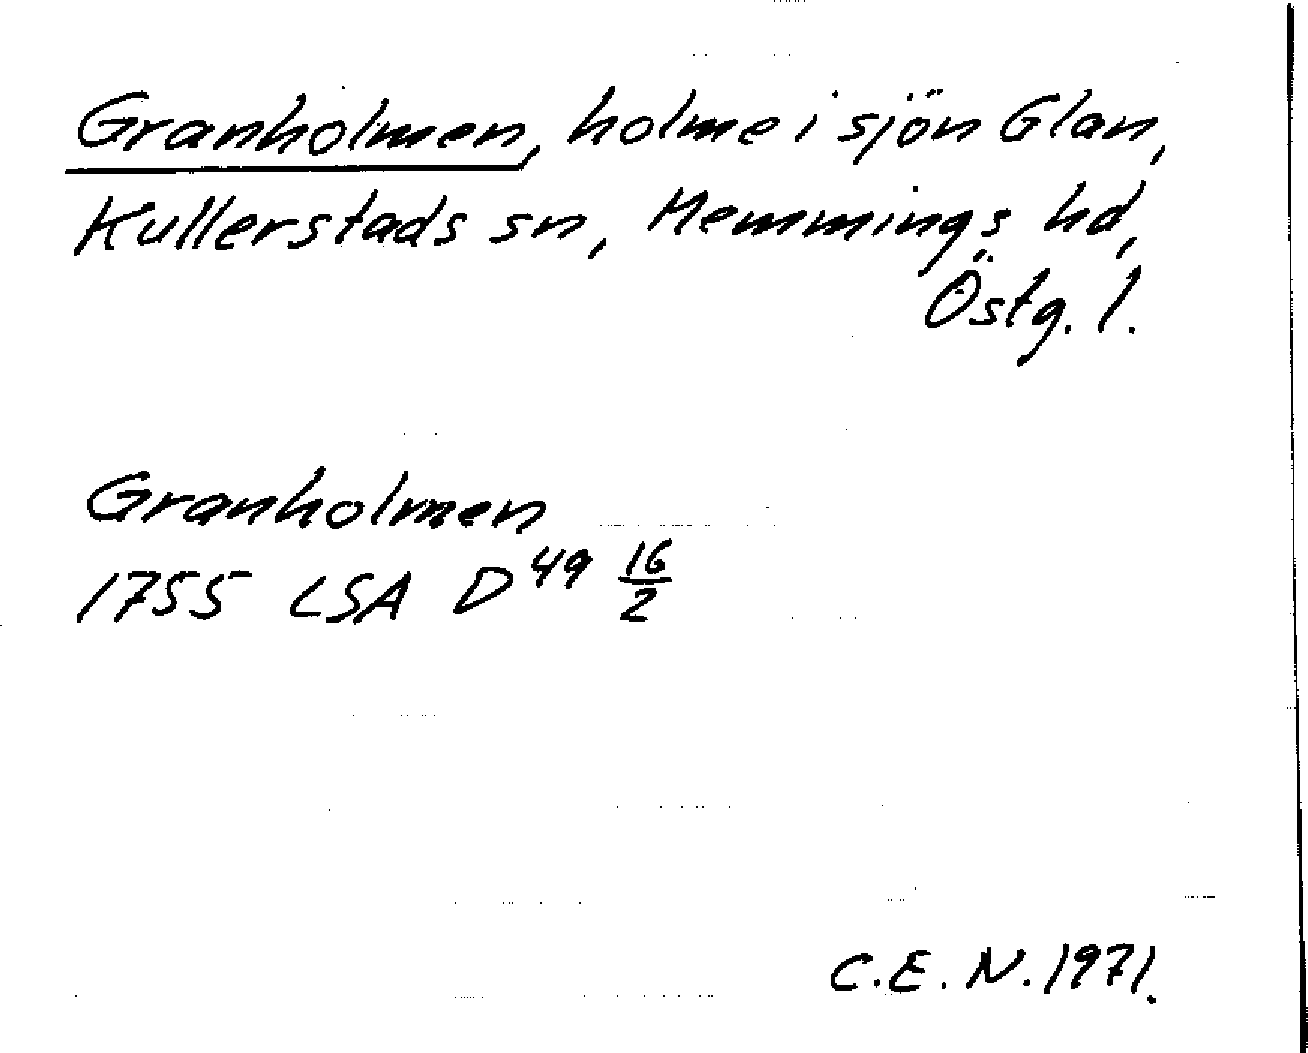 Granholmen, holme i sjön Glan,
Kullerstads sn, Memmings hd,
Östg. l.
Granholmen
1755 LSA D 49 16/2
C.E.N. 1971.